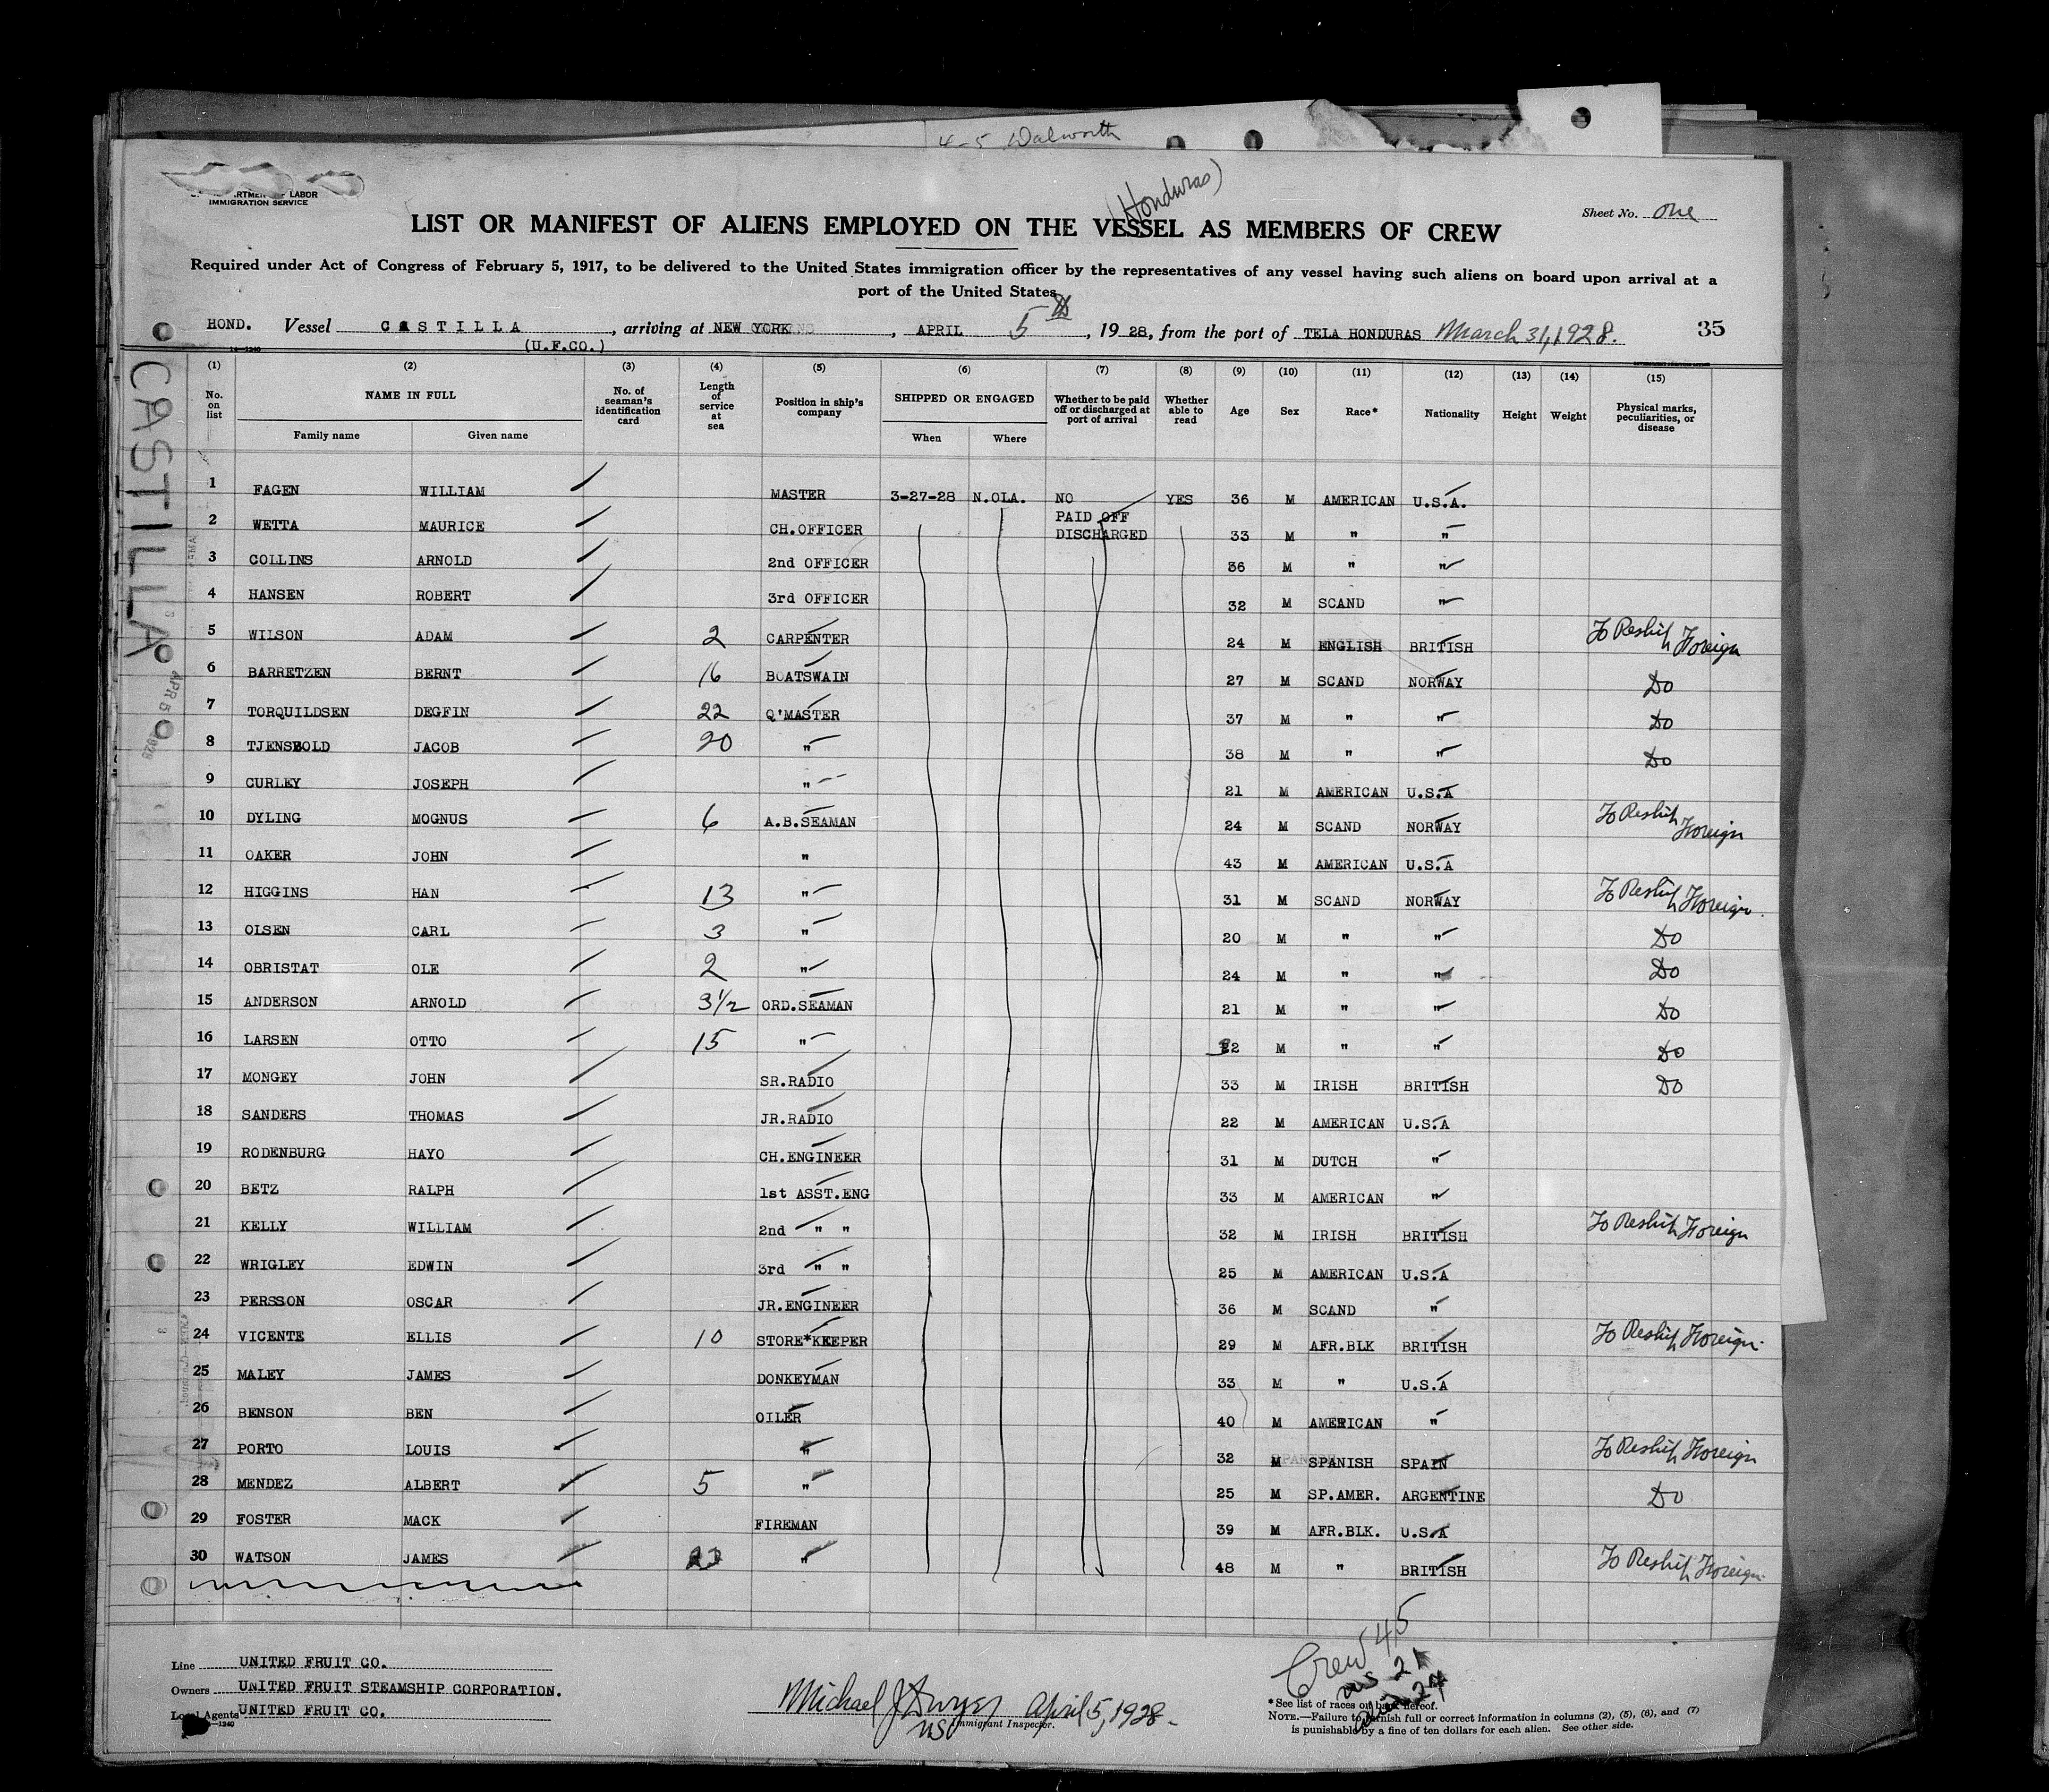 4-5 Walworth
(Honduras)
LABOR
IMMIGRATION SERVICE
Sheet No. One
LIST OR MANIFEST OF ALIENS EMPLOYED ON THE VESSEL AS MEMBERS OF CREW
Required under Act of Congress of February 5, 1917, to be delivered to the United States immigration officer by the representatives of any vessel having such aliens on board upon arrival at a
port of the United States
HOND. Vessel CASTILLA, arriving at NEW YORK, APRIL 5th, 1928, from the port of TELA HONDURAS March 31, 1928. 35
(U.F.CO.)
CASTILLA
(1) (2) (3) (4) (5) (6) (7) (8) (9) (10) (11) (12) (13) (14) (15)
No. on list NAME IN FULL No. of seaman's identification card Length of service at sea Position in ship's company SHIPPED OR ENGAGED Whether to be paid off or discharged at port of arrival Whether able to read Age Sex Race* Nationality Height Weight Physical marks, peculiarities, or disease
Family name Given name When Where
1 FAGEN WILLIAM MASTER 3-27-28 N.OLA. NO YES 36 M AMERICAN U.S.A.
PAID OFF
2 WETTA MAURICE CH.OFFICER DISCHARGED 33 M " "
3 COLLINS ARNOLD 2nd OFFICER 36 M " "
4 HANSEN ROBERT 3rd OFFICER 32 M SCAND "
5 WILSON ADAM 2 CARPENTER 24 M ENGLISH BRITISH To Reship Foreign
6 BARRETZEN BERNT 16 BOATSWAIN 27 M SCAND NORWAY Do
7 TORQUILDSEN DEGFIN 22 Q'MASTER 37 M " " Do
8 TJENSVOLD JACOB 20 " 38 M " " Do
9 CURLEY JOSEPH " 21 M AMERICAN U.S.A
10 DYLING MOGNUS 6 A.B.SEAMAN 24 M SCAND NORWAY To Reship Foreign
11 OAKER JOHN " 43 M AMERICAN U.S.A
12 HIGGINS HAN 13 " 31 M SCAND NORWAY To Reship Foreign.
13 OLSEN CARL 3 " 20 M " " Do
14 OBRISTAT OLE 2 " 24 M " " Do
15 ANDERSON ARNOLD 3 1/2 ORD.SEAMAN 21 M " " Do
16 LARSEN OTTO 15 " 32 M " " Do
17 MONGEY JOHN SR.RADIO 33 M IRISH BRITISH Do
18 SANDERS THOMAS JR.RADIO 22 M AMERICAN U.S.A
19 RODENBURG HAYO CH.ENGINEER 31 M DUTCH "
20 BETZ RALPH 1st ASST.ENG 33 M AMERICAN "
21 KELLY WILLIAM 2nd " " 32 M IRISH BRITISH To Reship Foreign
22 WRIGLEY EDWIN 3rd " " 25 M AMERICAN U.S.A
23 PERSSON OSCAR JR.ENGINEER 36 M SCAND "
24 VICENTE ELLIS 10 STORE*KEEPER 29 M AFR.BLK BRITISH To Reship Foreign.
25 MALEY JAMES DONKEYMAN 33 M " U.S.A
26 BENSON BEN OILER 40 M AMERICAN "
27 PORTO LOUIS " 32 M SPANISH SPAIN To Reship Foreign
28 MENDEZ ALBERT 5 " 25 M SP.AMER. ARGENTINE Do
29 FOSTER MACK FIREMAN 39 M AFR.BLK. U.S.A
30 WATSON JAMES 23 " 48 M " BRITISH To Reship Foreign
Line UNITED FRUIT CO.
Owners UNITED FRUIT STEAMSHIP CORPORATION.
Local Agents UNITED FRUIT CO.
Michael J Dwyer April 5, 1928.
Immigrant Inspector.
Crew 45
21
24
*See list of races on back hereof.
NOTE.—Failure to furnish full or correct information in columns (2), (5), (6), and (7)
is punishable by a fine of ten dollars for each alien. See other side.